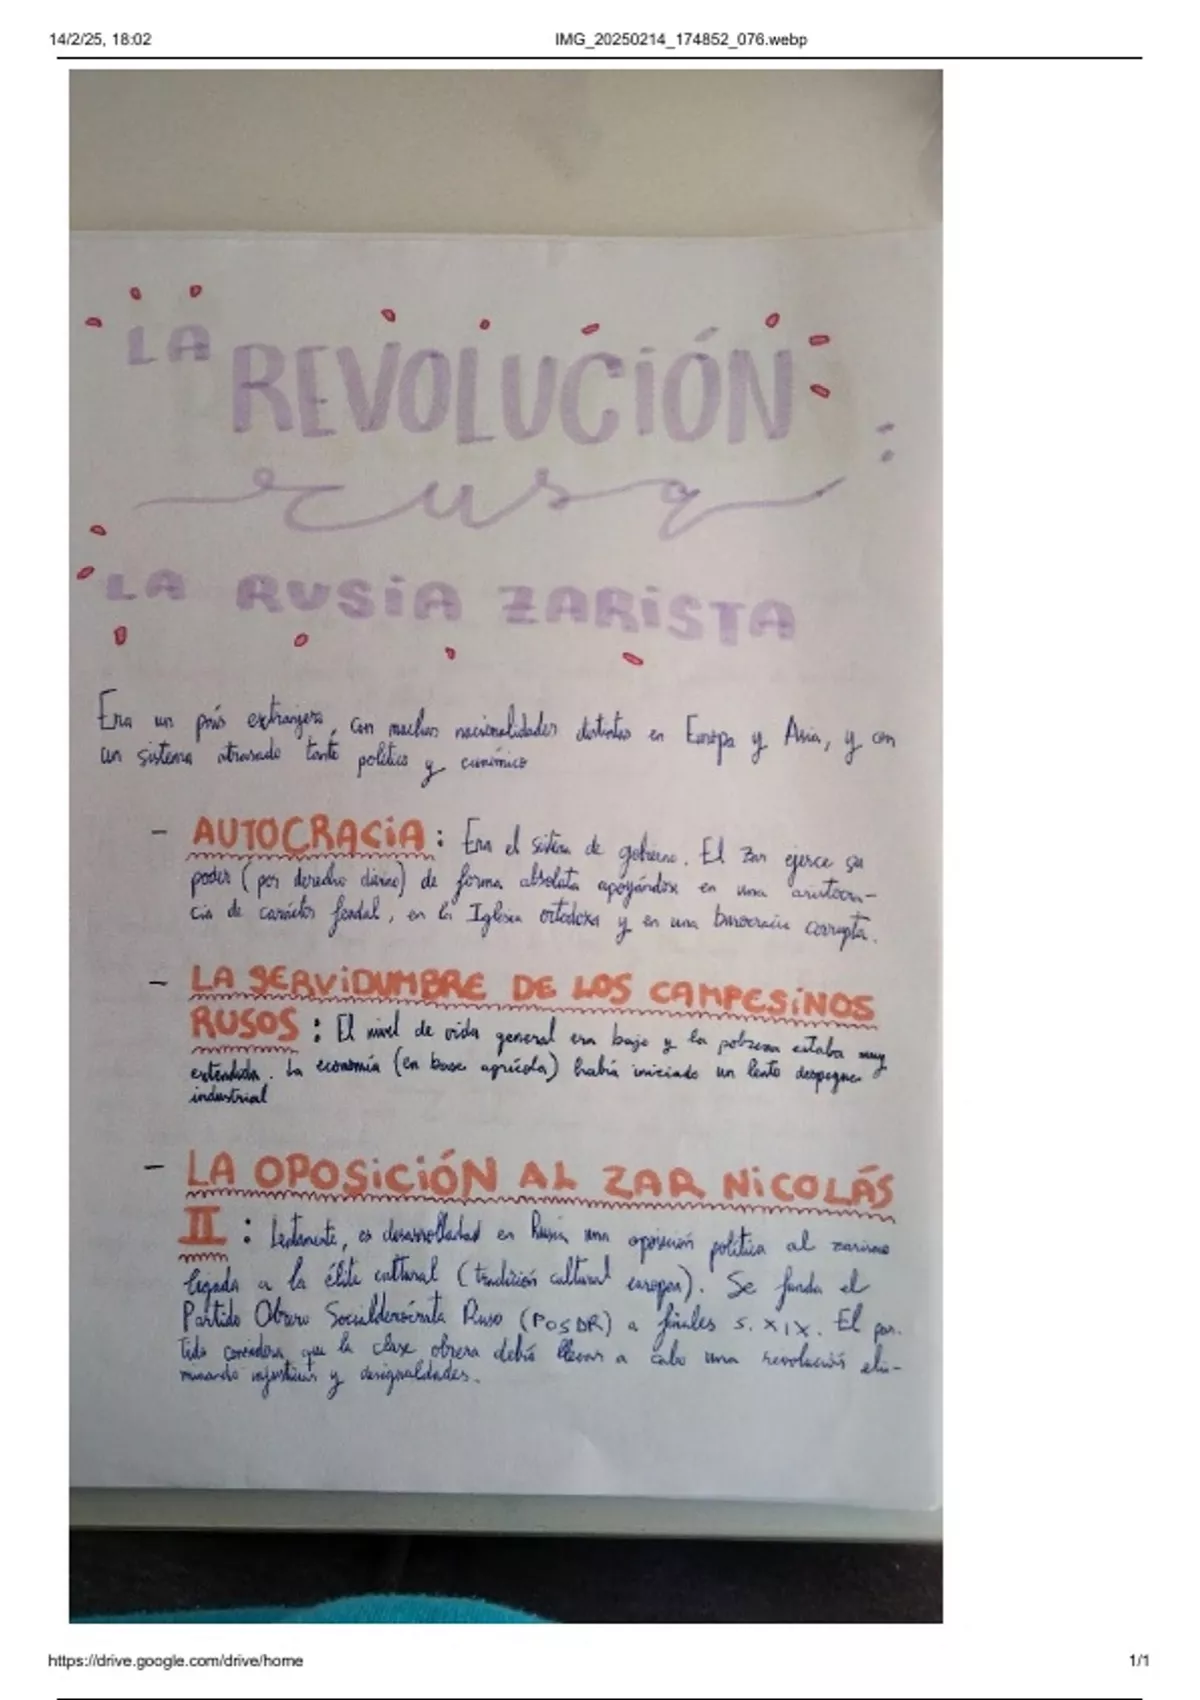 14/2/25, 18:02 IMG_20250214_174852_076.webp
LA REVOLUCIÓN :
rusa
LA RUSIA ZARISTA
Era un país extranjero, con muchas nacionalidades distintas en Europa y Asia, y con
un sistema atrasado tanto político y económico
- AUTOCRACIA : Era el sistema de gobierno. El zar ejerce su
poder (por derecho divino) de forma absoluta apoyándose en una aristocra-
cia de carácter feudal, en la Iglesia ortodoxa y en una burocracia corrupta.
- LA SERVIDUMBRE DE LOS CAMPESINOS
RUSOS : El nivel de vida general era bajo y la pobreza estaba muy
extendida. La economía (en base agrícola) había iniciado un lento despegue
industrial
- LA OPOSICIÓN AL ZAR NICOLÁS
II : Lentamente, es desarrollada en Rusia una oposición política al zarismo
ligada a la élite cultural (tradición cultural europea). Se funda el
Partido Obrero Socialdemócrata Ruso (POSDR) a finales s. XIX. El par-
tido considera que la clase obrera debía llevar a cabo una revolución eli-
minando injusticias y desigualdades.
https://drive.google.com/drive/home 1/1